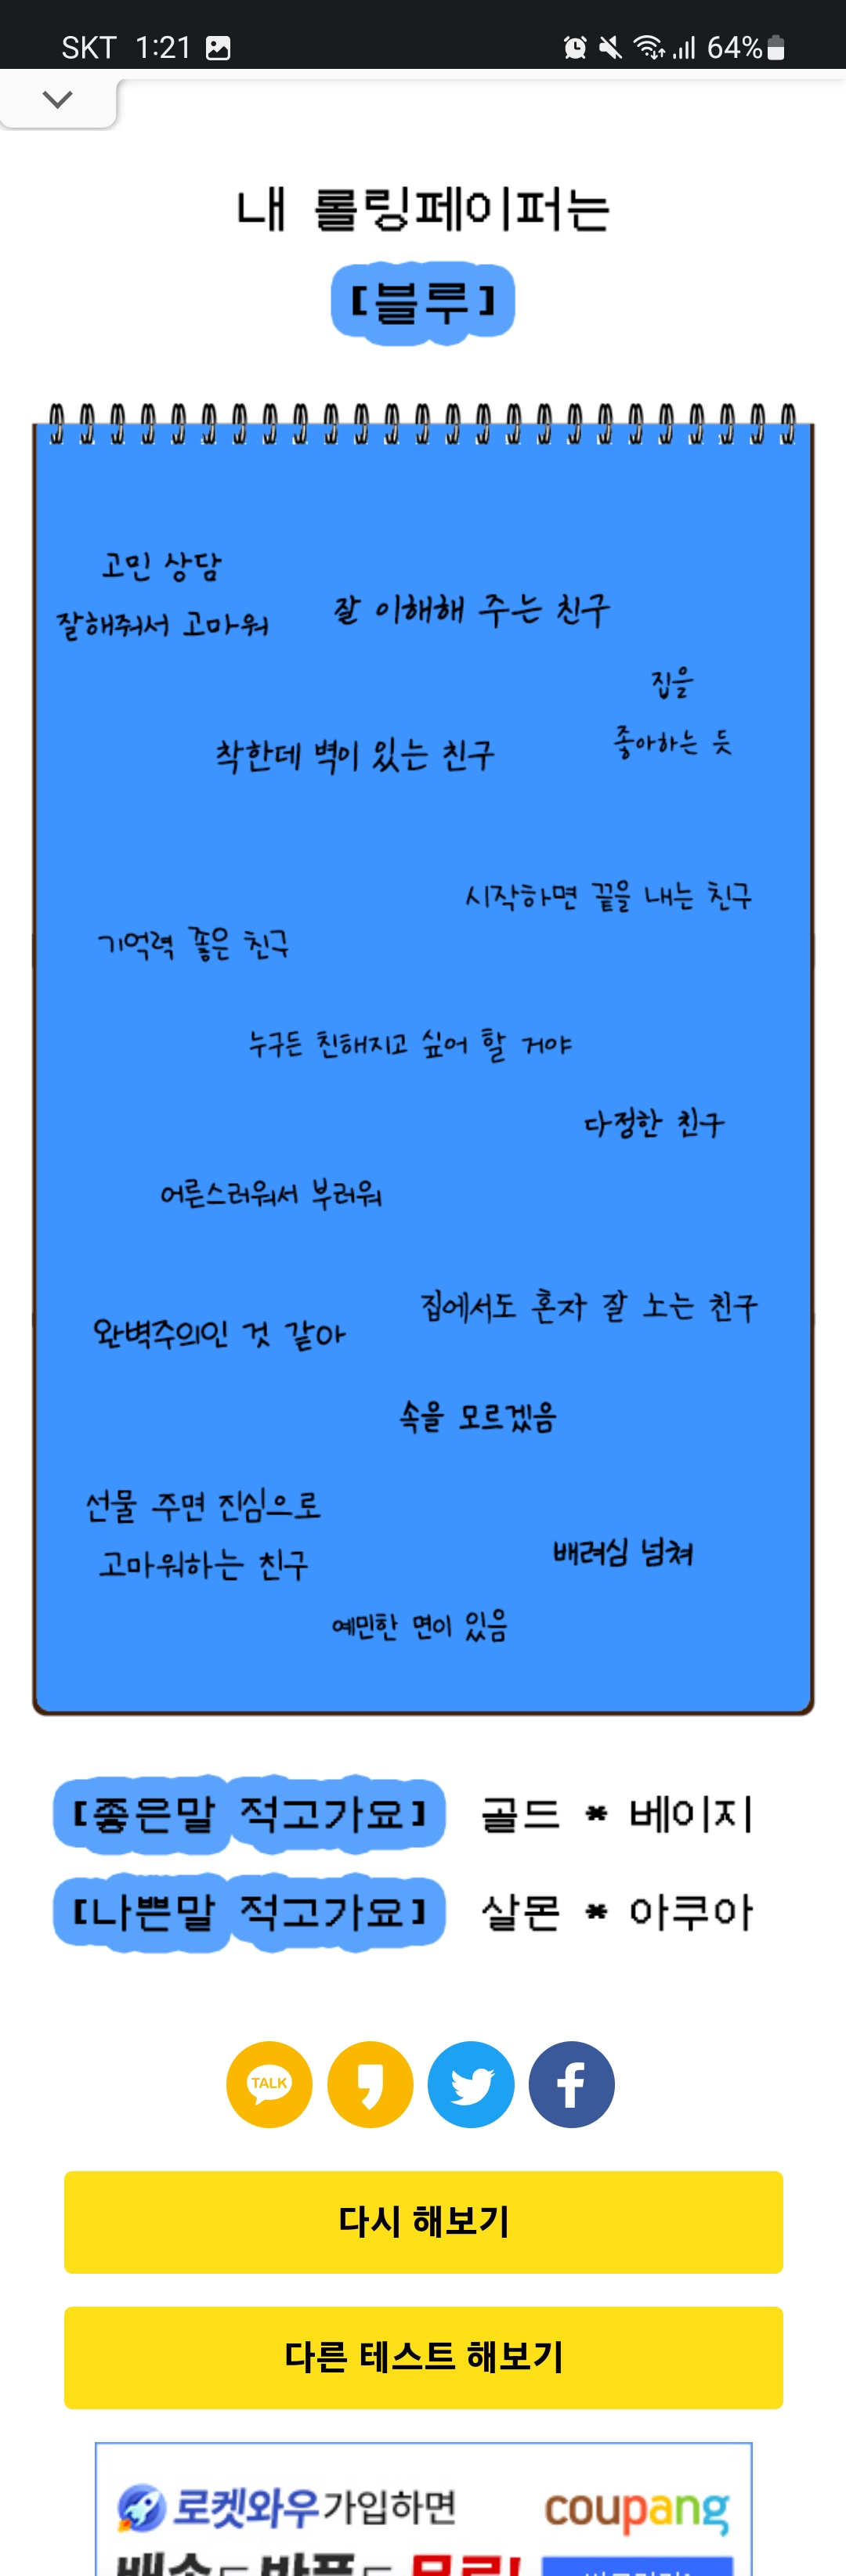 SKT 1:21 64%
내 롤링페이퍼는
[블루]
고민 상담
잘해줘서 고마워
잘 이해해 주는 친구
집을
좋아하는 듯
착한데 벽이 있는 친구
시작하면 끝을 내는 친구
기억력 좋은 친구
누구든 친해지고 싶어 할 거야
다정한 친구
어른스러워서 부러워
집에서도 혼자 잘 노는 친구
완벽주의인 것 같아
속을 모르겠음
선물 주면 진심으로
고마워하는 친구
배려심 넘쳐
예민한 면이 있음
[좋은말 적고가요] 골드 * 베이지
[나쁜말 적고가요] 살몬 * 아쿠아
TALK
다시 해보기
다른 테스트 해보기
로켓와우 가입하면 coupang